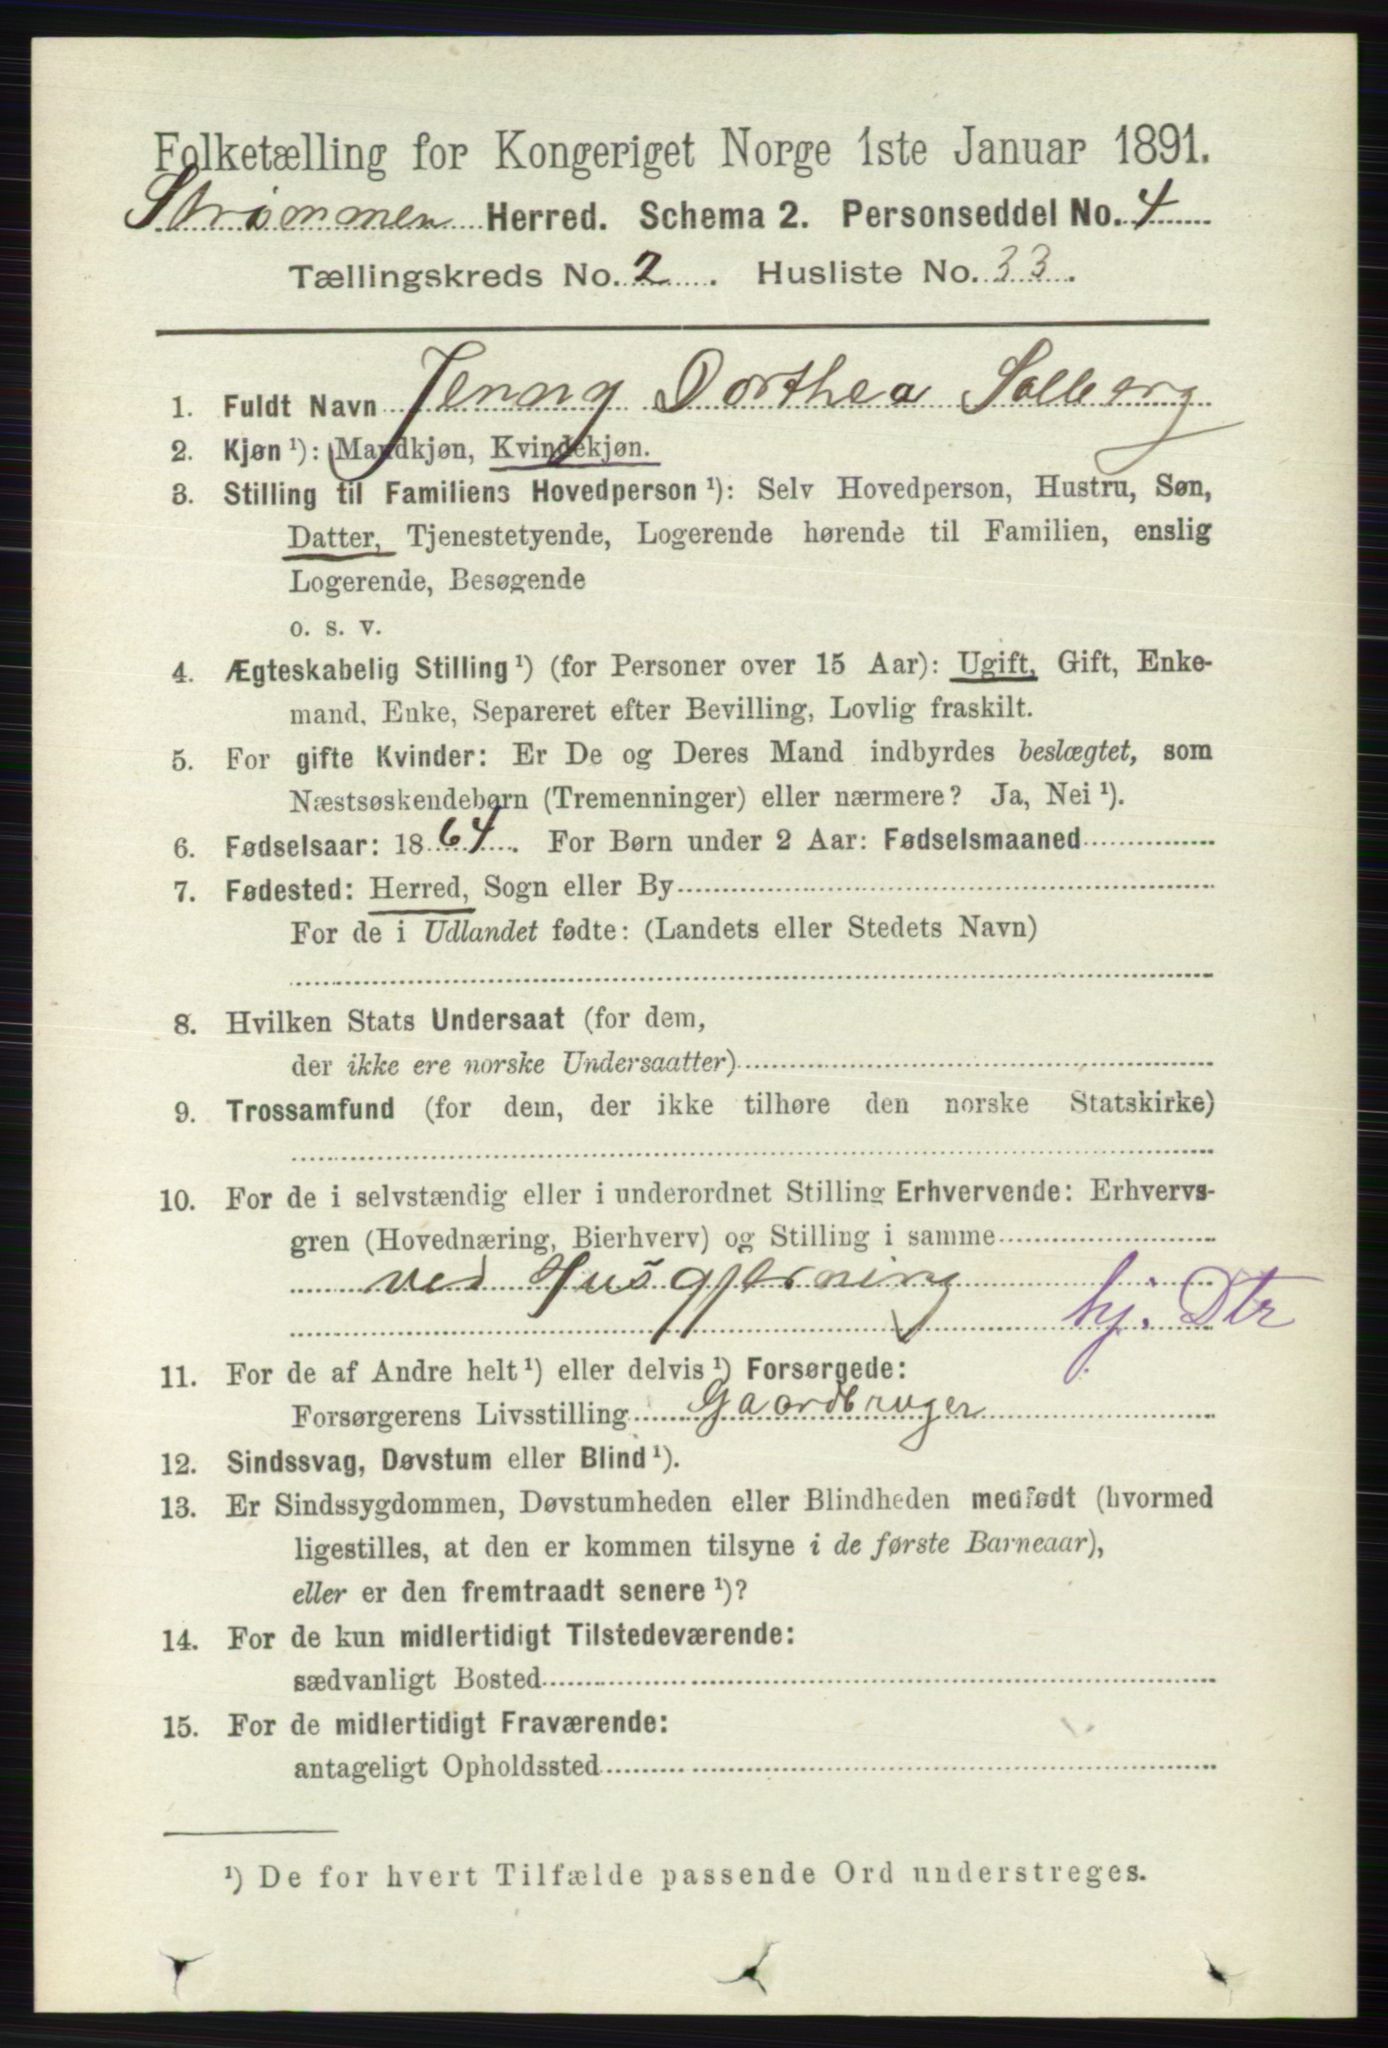 Folketælling for Kongeriget Norge 1ste Januar 1891.
Strømmen Herred. Schema 2. Personseddel No. 4
Tællingskreds No. 2. Husliste No. 33.
1. Fuldt Navn Jenny Dorthea Solberg
2. Kjøn ¹): Mandkjøn, Kvindekjøn.
3. Stilling til Familiens Hovedperson ¹): Selv Hovedperson, Hustru, Søn,
Datter, Tjenestetyende, Logerende hørende til Familien, enslig
Logerende, Besøgende
o. s. v.
4. Ægteskabelig Stilling ¹) (for Personer over 15 Aar): Ugift, Gift, Enke-
mand, Enke, Separeret efter Bevilling, Lovlig fraskilt.
5. For gifte Kvinder: Er De og Deres Mand indbyrdes beslægtet, som
Næstsøskendebørn (Tremenninger) eller nærmere? Ja, Nei ¹).
6. Fødselsaar: 1864. For Børn under 2 Aar: Fødselsmaaned
7. Fødested: Herred, Sogn eller By
For de i Udlandet fødte: (Landets eller Stedets Navn)
8. Hvilken Stats Undersaat (for dem,
der ikke ere norske Undersaatter)
9. Trossamfund (for dem, der ikke tilhøre den norske Statskirke)
10. For de i selvstændig eller i underordnet Stilling Erhvervende: Erhvervs-
gren (Hovednæring, Bierhverv) og Stilling i samme
ved Husgjerning
hj. Dtr
11. For de af Andre helt ¹) eller delvis ¹) Forsørgede:
Forsørgerens Livsstilling Gaardbruger
12. Sindssvag, Døvstum eller Blind ¹).
13. Er Sindssygdommen, Døvstumheden eller Blindheden medfødt (hvormed
ligestilles, at den er kommen tilsyne i de første Barneaar),
eller er den fremtraadt senere ¹)?
14. For de kun midlertidigt Tilstedeværende:
sædvanligt Bosted
15. For de midlertidigt Fraværende:
antageligt Opholdssted
¹) De for hvert Tilfælde passende Ord understreges.